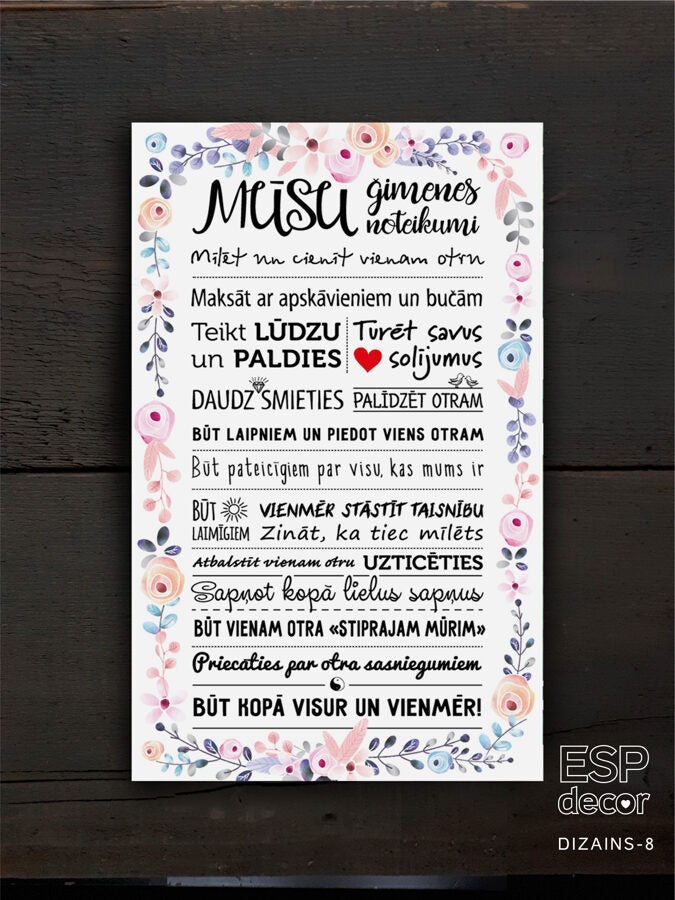 Mūsu ģimenes noteikumi
Mīlēt un cienīt vienam otru
Maksāt ar apskāvieniem un bučām
Teikt LŪDZU
un PALDIES
Turēt savus
solījumus
DAUDZ SMIETIES
PALĪDZĒT OTRAM
BŪT LAIPNIEM UN PIEDOT VIENS OTRAM
Būt pateicīgiem par visu, kas mums ir
BŪT
LAIMĪGIEM
VIENMĒR STĀSTĪT TAISNĪBU
Zināt, ka tiec mīlēts
Atbalstīt vienam otru
UZTICĒTIES
Sapņot kopā lielus sapņus
BŪT VIENAM OTRA «STIPRAJAM MŪRIM»
Priecāties par otra sasniegumiem
BŪT KOPĀ VISUR UN VIENMĒR!
ESP
decor
DIZAINS-8